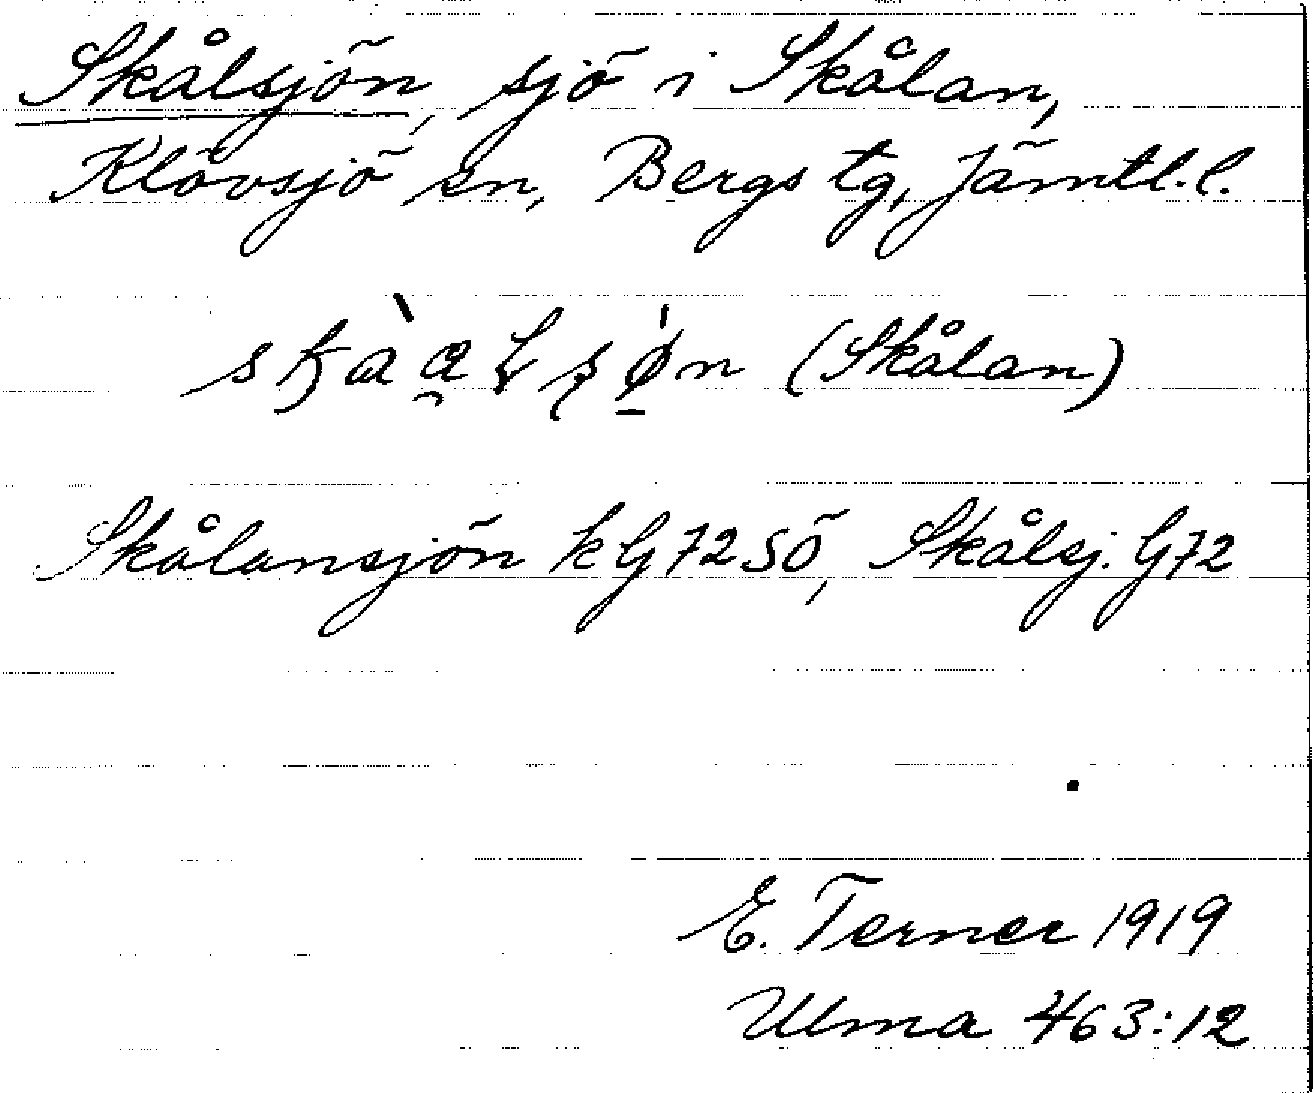 Skålsjön, sjö i Skålan,
Klövsjö sn, Bergs tg, Jämtl.l.
(Skålan)
Skålansjön kG72SÖ, Skålsj. G72
E. Terner 1919
Ulma 463:12